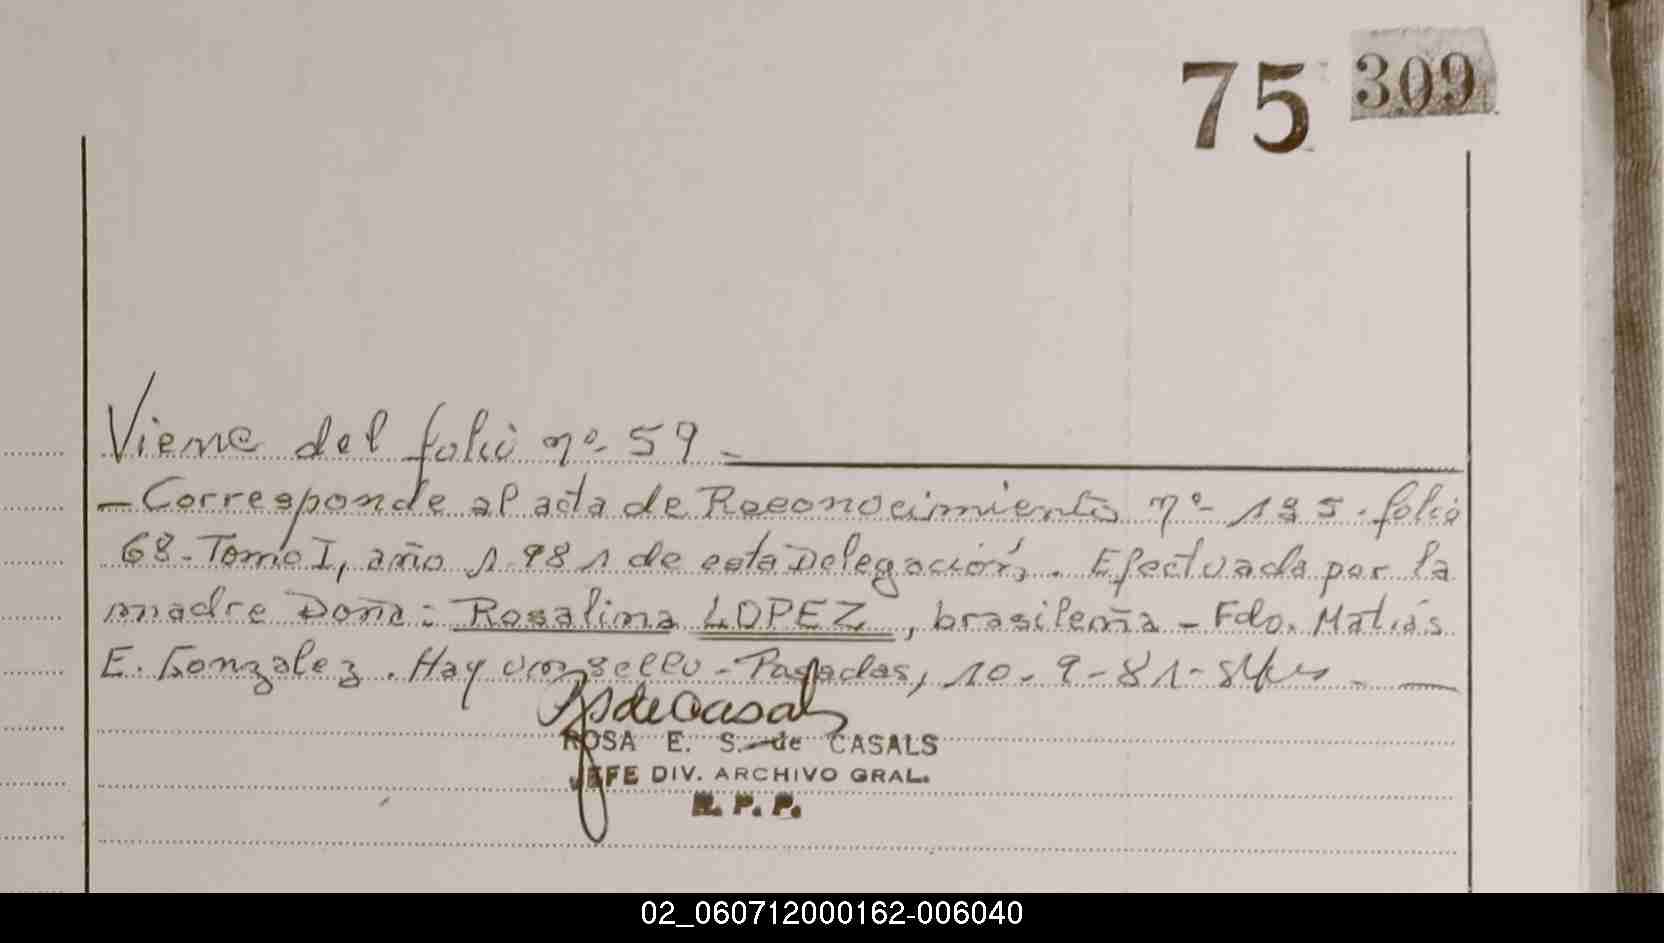 75 309
Viene del folio nº 59 -
- Corresponde al acta de Reconocimiento nº 195. folio
68 - Tomo I, año 1.981 de esta Delegación, . Efectuada por la
madre Doña: Rosalina LOPEZ, brasileña - Fdo. Matías
E. Gonzalez. Hay un sello - Posadas, 10 - 9 - 81 -
RSdeCasals
ROSA E. S. de CASALS
JEFE DIV. ARCHIVO GRAL.
R. P. P.
02_060712000162-006040